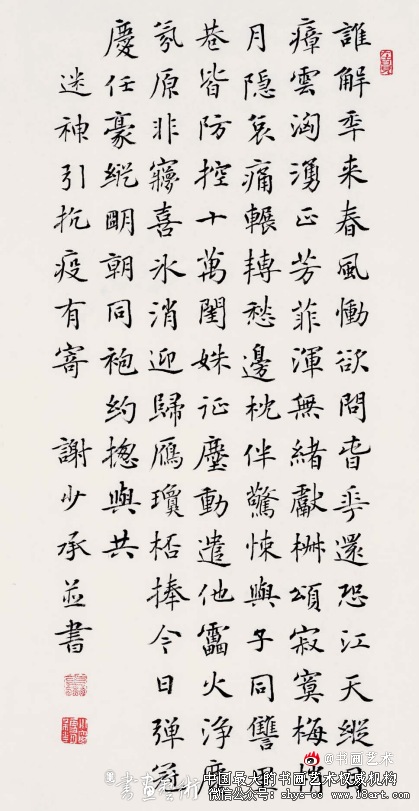 誰解秊来春風慟欲問旾華還恐江天縱
瘴雲洶湧正芳菲渾無緒獻椒頌寂寞梅梢
月隱哀痛輾轉愁邊枕伴驚悚與子同讐
巷皆防控十萬閨姝征塵動遣他靁火净
氛原非寱喜氷消迎歸鴈瓊桮捧今日弹冠
慶任豪縱朙朝同袍約揔與共
迷神引抗疫有寄 謝少承並書
@书画艺术
中国最大的书画艺术机构
微信公众号：shys-co www.16art.com